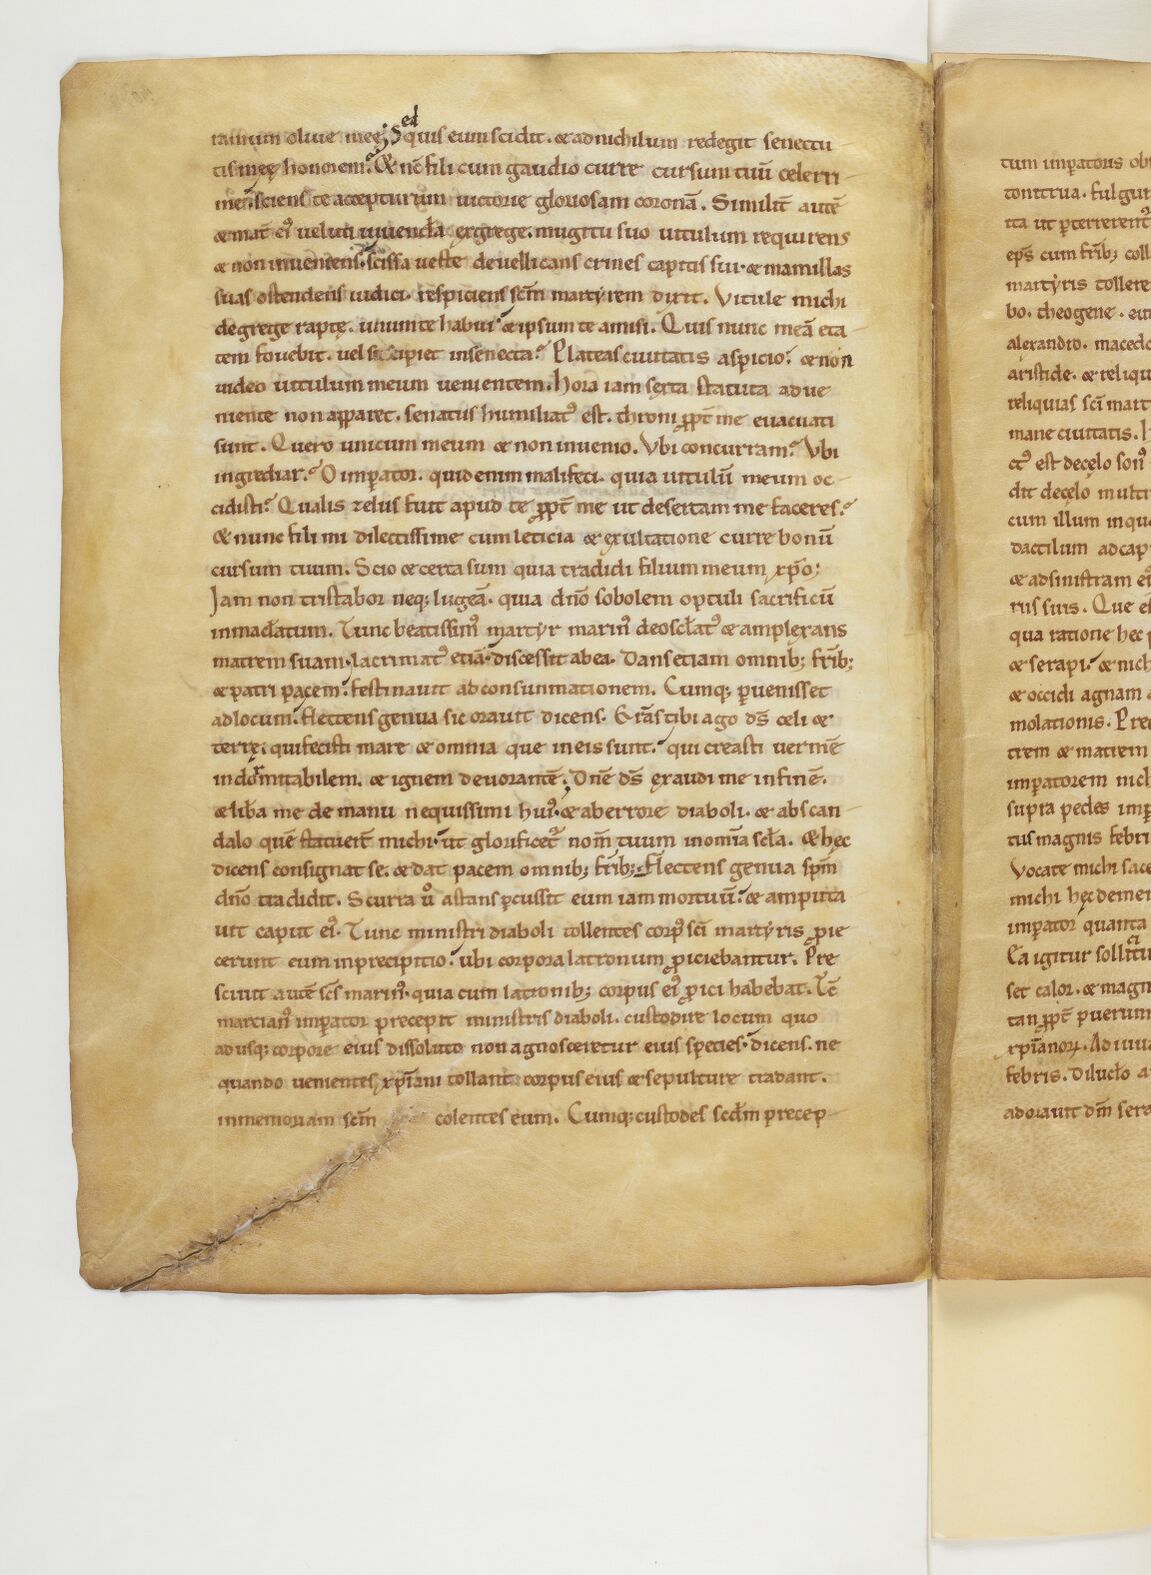 ramum oliue meę; Sed quis eum scidit. & ad nichilum redegit senectu
tis meę honorem? & nc̄ fili cum gaudio curre cursum tuū celerri
me. sciens te accepturum uictorie gloriosam coronā. Similit̄ autē
& mat̄ ei᾽ uelut iuuencła ex grege. mugitu suo uitulum requirens
& non inueniens. scissa ueste deuellicans crines capitis sui. & mamillas
suas ostendens iudici. respiciens sc̄m martyrem dixit. Vitule michi
de grege rapte. unum te habui & ipsum te amisi. Quis nunc meā eta
tem fouebit. uel suscipiet in senecta? Plateas ciuitatis aspicio? & non
uideo uitulum meum uenientem. Hora iam sexta statuta adue
niente non apparet. senatus humiliat᾽ est. throni ꝓpt̄ me euacuati
sunt. Quero unicum meum & non inuenio. Vbi concurram? Vbi
ingrediar? O imꝑator. quid enim mali feci. quia uitulū meum oc
cidisti? Qualis zelus fuit apud te ꝓpt̄ me ut desertam me faceres?
& nunc fili mi dilectissime cum leticia & exultatione curre bonū
cursum tuum. Scio & certa sum quia tradidi filium meum xp̄o;
Iam non tristabor neq; lugeā. quia dn̄o sobolem optuli sacrificiū
inmacłatum. Tunc beatissim᾽ martyr marin᾽ deoscłat᾽ & amplexans
matrem suam. lacrimat᾽ etiā. discessit ab ea. Dans etiam omnib; fr̄ib;
& patri pacem. festinauit ad consummationem. Cumq; ꝑuenisset
ad locum. flectens genua sic orauit dicens. Gr̄as tibi ago ds̄ celi &
terrę. qui fecisti mare & omnia que in eis sunt. qui creasti uermē
indormitabilem. & ignem deuorantē. Dn̄e ds̄ exaudi me in finē.
& lib̄a me de manu nequissimi hui᾽ & ab errore diaboli. & ab scan
dalo quē statuerit̄ michi. ut glorificet᾽ nom̄ tuum in om̄ia scła. & hęc
dicens consignat se. & dat pacem omnib; fr̄ib; Flectens genua sp̄m
dn̄o tradidit. Scurra u᾽ astans ꝑcussit eum iam mortuū. & amputa
uit caput ei᾽. Tunc ministri diaboli tollentes corp᾽ sc̄i martyris ꝓie
cerunt eum in precipitio. ubi corpora latronum ꝓiciebantur. Pre
sciuit autē sc̄s marin᾽. quia cum latronib; corpus ei᾽ ꝓici habebat. Tc̄
marcian᾽ imꝑator precepit ministris diaboli. custodire locum quo
adusq; corpore eius dissoluto non agnosceretur eius species. dicens. ne
quando uenientes xp̄iani tollant corpus eius & sepulture tradant.
in memoriam sc̄m colentes eum. Cumq; custodes scd̄m precep
tum imꝑatoris obs
tonitrua. fulgur
ita ut ꝑterrerent᾽
ep̄s cum fr̄ib; coll
martyris tollere
bo. theogene. eut
alexandro. macedo
aristide. & reliqu
reliquias sc̄i mart
mane ciuitatis. h
ct᾽ est de cęlo son᾽
dit de cęlo multi
cum illum in quo
dactilum ad cap
& ad sinistram ei
rus suis. Que es
qua ratione hec p
& serapi. & nich
& occidi agnam
molationis. Prec
trem & matrem
imꝑatorem nich
supra pedes imp
tus magnis febri
Vocate michi sace
michi hęc demen
imꝑator quanta
Ea igitur sollicitu
set calor. & magn
tan ꝓpt̄ puerum
xp̄ianoꝝ. Ad iuua
febris. Dilucło a
adorauit dm̄ sera